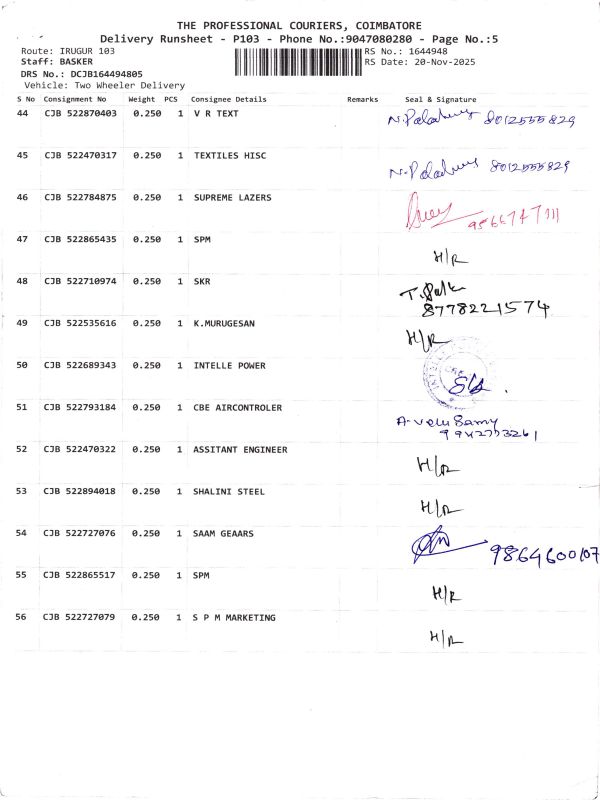 THE PROFESSIONAL COURIERS, COIMBATORE
Delivery Runsheet - P103 - Phone No.:9047080280 - Page No.:5
Route: IRUGUR 103 RS No.: 1644948
Staff: BASKER RS Date: 20-Nov-2025
DRS No.: DCJB164494805
Vehicle: Two Wheeler Delivery
S No Consignment No Weight PCS Consignee Details Remarks Seal & Signature
44 CJB 522870403 0.250 1 V R TEXT 8012555829
45 CJB 522470317 0.250 1 TEXTILES HISC 8012555829
46 CJB 522784875 0.250 1 SUPREME LAZERS
47 CJB 522865435 0.250 1 SPM H/R
48 CJB 522710974 0.250 1 SKR
8778221574
49 CJB 522535616 0.250 1 K.MURUGESAN H/R
50 CJB 522689343 0.250 1 INTELLE POWER
51 CJB 522793184 0.250 1 CBE AIRCONTROLER A. Velu Samy
52 CJB 522470322 0.250 1 ASSITANT ENGINEER H/R
53 CJB 522894018 0.250 1 SHALINI STEEL H/R
54 CJB 522727076 0.250 1 SAAM GEAARS 9864600107
55 CJB 522865517 0.250 1 SPM H/R
56 CJB 522727079 0.250 1 S P M MARKETING H/R